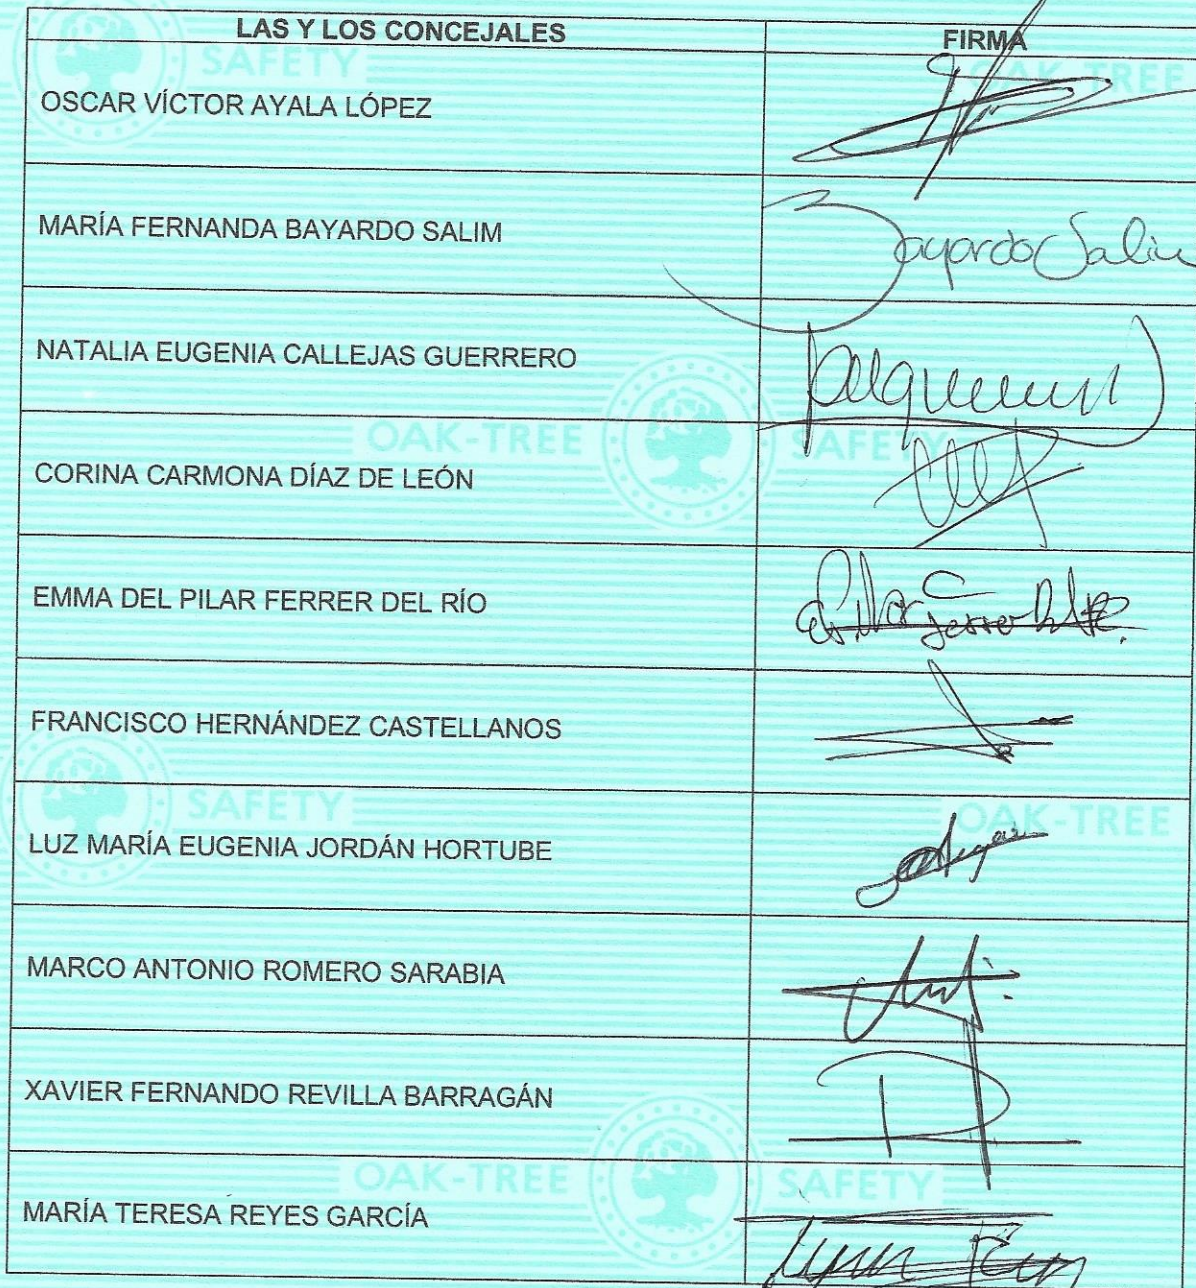 LAS Y LOS CONCEJALES
FIRMA
SAFETY
OAK-TREE
OSCAR VÍCTOR AYALA LÓPEZ
MARÍA FERNANDA BAYARDO SALIM
Bayardo Salim
NATALIA EUGENIA CALLEJAS GUERRERO
OAK-TREE SAFETY
CORINA CARMONA DÍAZ DE LEÓN
EMMA DEL PILAR FERRER DEL RÍO
FRANCISCO HERNÁNDEZ CASTELLANOS
SAFETY
OAK-TREE
LUZ MARÍA EUGENIA JORDÁN HORTUBE
MARCO ANTONIO ROMERO SARABIA
XAVIER FERNANDO REVILLA BARRAGÁN
OAK-TREE SAFETY
MARÍA TERESA REYES GARCÍA